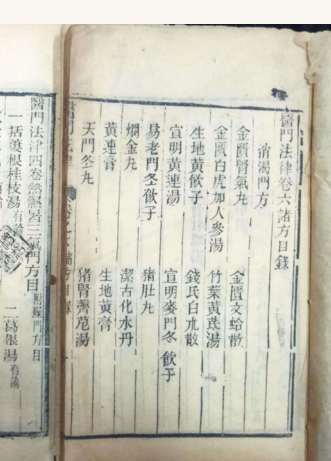 醫門法律卷六諸方目錄
消渴門方
金匱腎氣丸
金匱文蛤散
金匱白虎加人參湯
竹葉黃芪湯
生地黃飲子
錢氏白朮散
宣明黃連湯
宣明麥門冬飲子
易老門冬飲子
豬肚丸
爛金丸
潔古化水丹
黃連膏
生地黃膏
天門冬丸
豬腎薺苨湯
醫門法律四卷熱濕暑三氣門方目
一括蔞根桂枝湯 有論
二葛根湯 有論